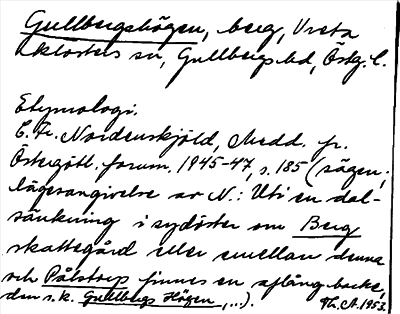 Gullbergshögen, berg, Vreta
klosters sn, Gullbergs hd, Östg. l.
Etymologi.
C. Fr. Nordenskjöld, Medd. fr.
Östergötl. fornm. 1945-47, s. 185 (sägen;
lägesangivelse av N.: Uti en dal-
sänkning i sydöster om Berg
skattegård eller emellan denna
och Pålstorp finnes en aflång backe,
den s.k. Gullbergs Högen, ...).
1953